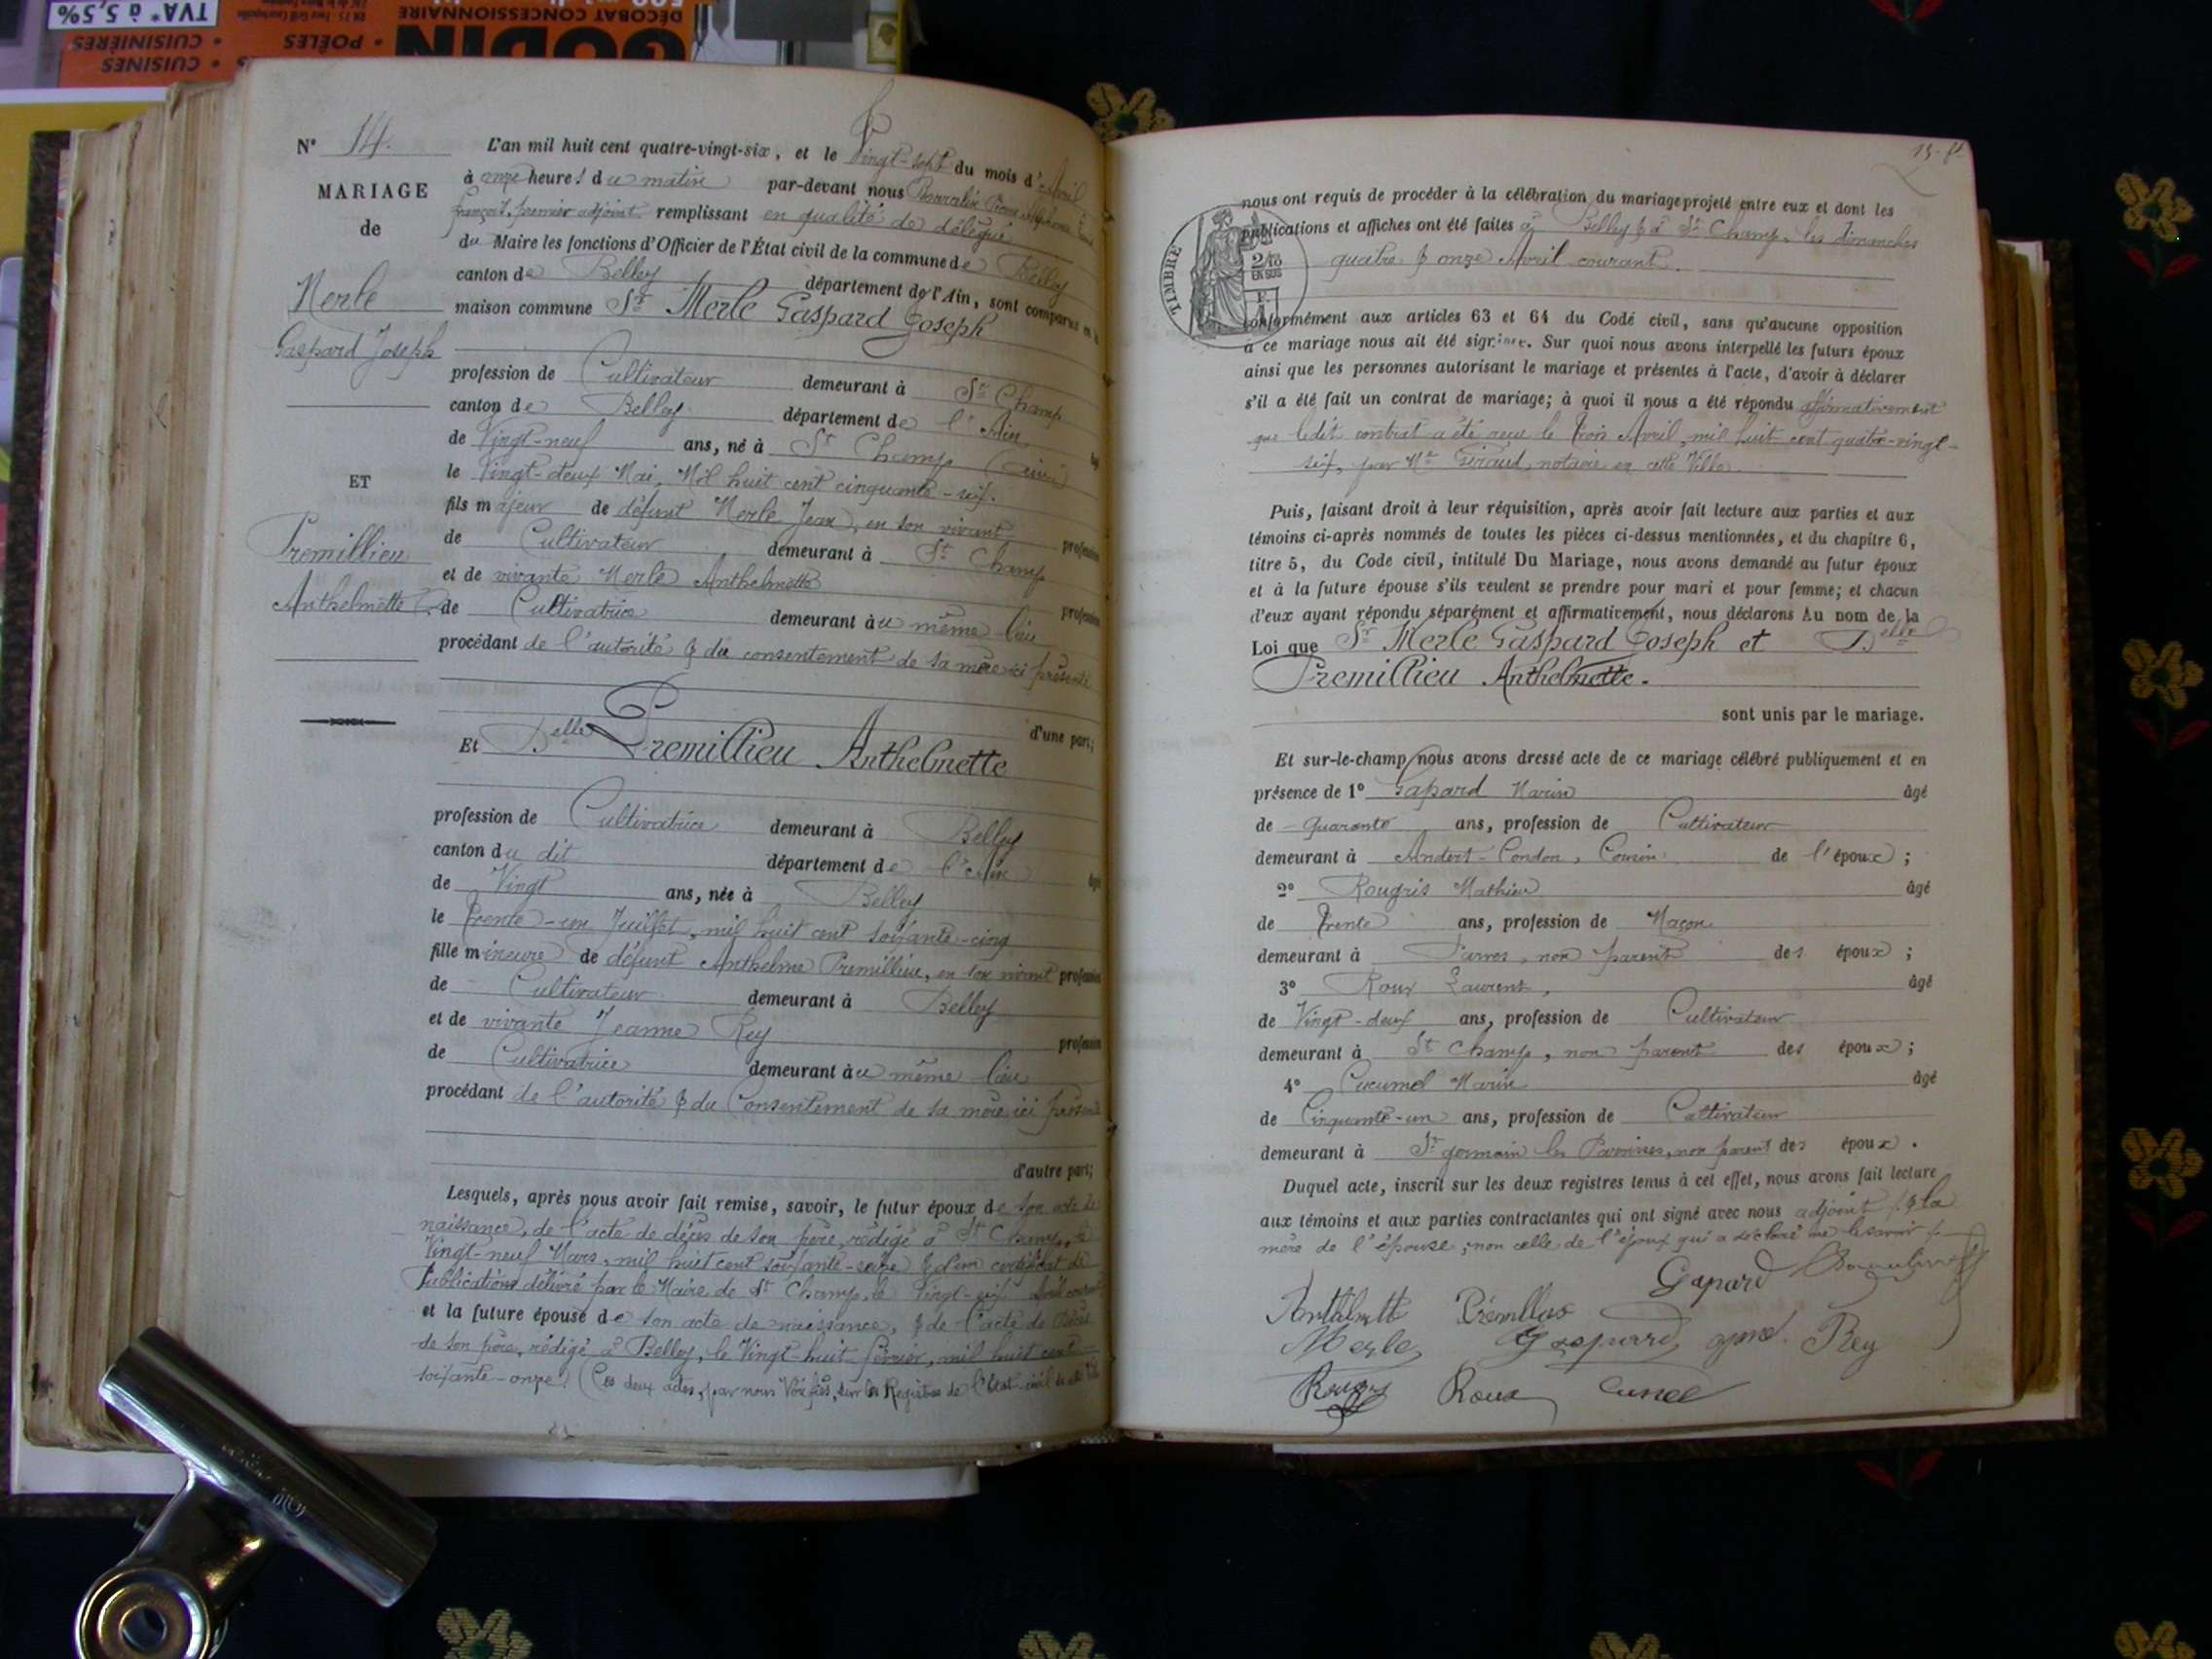 TVA* à 5,5%
CUISINIÈRES • POÊLES •
CUISINES •
GODIN
DÉCOBAT CONCESSIONNAIRE
N° 14.
MARIAGE
de
Merle
Gaspard Joseph
ET
Premillieu
Anthelmette
L'an mil huit cent quatre-vingt-six, et le Vingt-sept du mois d'Avril
à onze heures du matin par-devant nous
françois, premier adjoint remplissant en qualité de délégué
du Maire les fonctions d'Officier de l'État civil de la commune de Belley
canton de Belley département de l'Ain, sont comparus en la
maison commune Sr Merle Gaspard Joseph
profession de Cultivateur demeurant à St Champ
canton de Belley département de l'Ain
de Vingt-neuf ans, né à St Champ (Ain) âgé
le Vingt-deux Mai, Mil huit cent cinquante-six.
fils majeur de défunt Merle Jean, en son vivant
de Cultivateur demeurant à St Champ profession
et de vivante Merle Anthelmette
de Cultivatrice demeurant au même lieu profession
procédant de l'autorité & du consentement de sa mère ici présente
d'une part;
Et Delle Premillieu Anthelmette
profession de Cultivatrice demeurant à Belley
canton du dit département de l'Ain
de Vingt ans, née à Belley âgé
le trente-un Juillet, mil huit cent soixante-cinq
fille mineure de défunt Anthelme Premillieu, en son vivant profession
de Cultivateur demeurant à Belley
et de vivante Jeanne Rey profession
de Cultivatrice demeurant au même lieu
procédant de l'autorité & du Consentement de sa mère ici présente
d'autre part;
Lesquels, après nous avoir fait remise, savoir, le futur époux de son acte de
naissance, de l'acte de décès de son père, rédigé à St Champ, le
Vingt-neuf Mars, mil huit cent soixante-seize & d'un certificat de
Publications délivré par le Maire de St Champ, le Vingt-six Avril courant
et la future épouse de son acte de naissance, & de l'acte de décès
de son père, rédigé à Belley, le Vingt-huit février, mil huit cent
soixante-onze. (Ces deux actes, par nous Vérifiés, sur les Registres de l'Etat-civil de cette Ville
TIMBRE
2/10
EN SUS
nous ont requis de procéder à la célébration du mariage projeté entre eux et dont les
publications et affiches ont été faites à Belley & à St Champ, les dimanches
quatre & onze Avril courant.
conformément aux articles 63 et 64 du Code civil, sans qu'aucune opposition
à ce mariage nous ait été signifiée. Sur quoi nous avons interpellé les futurs époux
ainsi que les personnes autorisant le mariage et présentes à l'acte, d'avoir à déclarer
s'il a été fait un contrat de mariage; à quoi il nous a été répondu affirmativement
que ledit contrat a été reçu le trois Avril, mil huit cent quatre-vingt-
six, par Me Giraud, notaire en cette Ville.
Puis, faisant droit à leur réquisition, après avoir fait lecture aux parties et aux
témoins ci-après nommés de toutes les pièces ci-dessus mentionnées, et du chapitre 6,
titre 5, du Code civil, intitulé Du Mariage, nous avons demandé au futur époux
et à la future épouse s'ils veulent se prendre pour mari et pour femme; et chacun
d'eux ayant répondu séparément et affirmativement, nous déclarons Au nom de la
Loi que Sr Merle Gaspard Joseph et Delle
Premillieu Anthelmette.
sont unis par le mariage.
Et sur-le-champ nous avons dressé acte de ce mariage célébré publiquement et en
présence de 1° Gapard Marin âgé
de quarante ans, profession de Cultivateur
demeurant à Andert-Condon, Cousin de l'époux;
2° Rougris Mathieu âgé
de trente ans, profession de Maçon
demeurant à Parves, non parent des époux;
3° Roux Laurent, âgé
de Vingt-deux ans, profession de Cultivateur
demeurant à St Champ, non parent des époux;
4° Cucumel Marin âgé
de Cinquante-un ans, profession de Cultivateur
demeurant à St germain les Paroisses, non parent des époux.
Duquel acte, inscrit sur les deux registres tenus à cet effet, nous avons fait lecture
aux témoins et aux parties contractantes qui ont signé avec nous adjoint & la
mère de l'épouse, non celle de l'époux qui a déclaré ne le savoir
Gapard
Merle Gaspard Rey
Roux